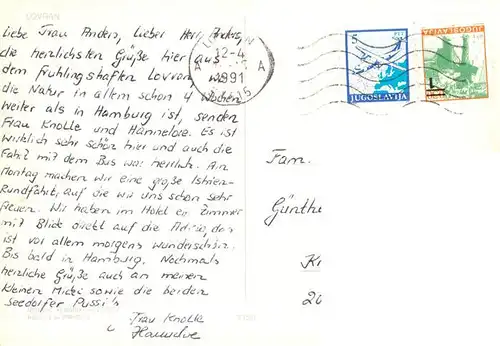 LOVRAN
Liebe Frau Anders, Lieber Herr Anders,
die herzlichsten Grüße hier aus
dem frühlingshaften Lovran, wo
die Natur in allem schon 4 Wochen
weiter als in Hamburg ist, senden
Frau Knolle und Hannelore. Es ist
wirklich sehr schön hier und auch die
Fahrt mit dem Bus war herrlich. Am
Montag machen wir eine große Istrien-
Rundfahrt, auf die wir uns schon sehr
freuen. Wir haben im Hotel ein Zimmer
mit Blick direkt auf die Adria, das
ist vor allem morgens wunderschön.
Bis bald in Hamburg. Nochmals
herzliche Grüße auch an meinen
kleinen Micki sowie die beiden
Seedorfer Pussi's
Frau Knolle
Hannelore
12-4
A A
1991
5 PTT
JUGOSLAVIJA
JUGOSLAVIJA
1
Fam.
Günthe
K
20